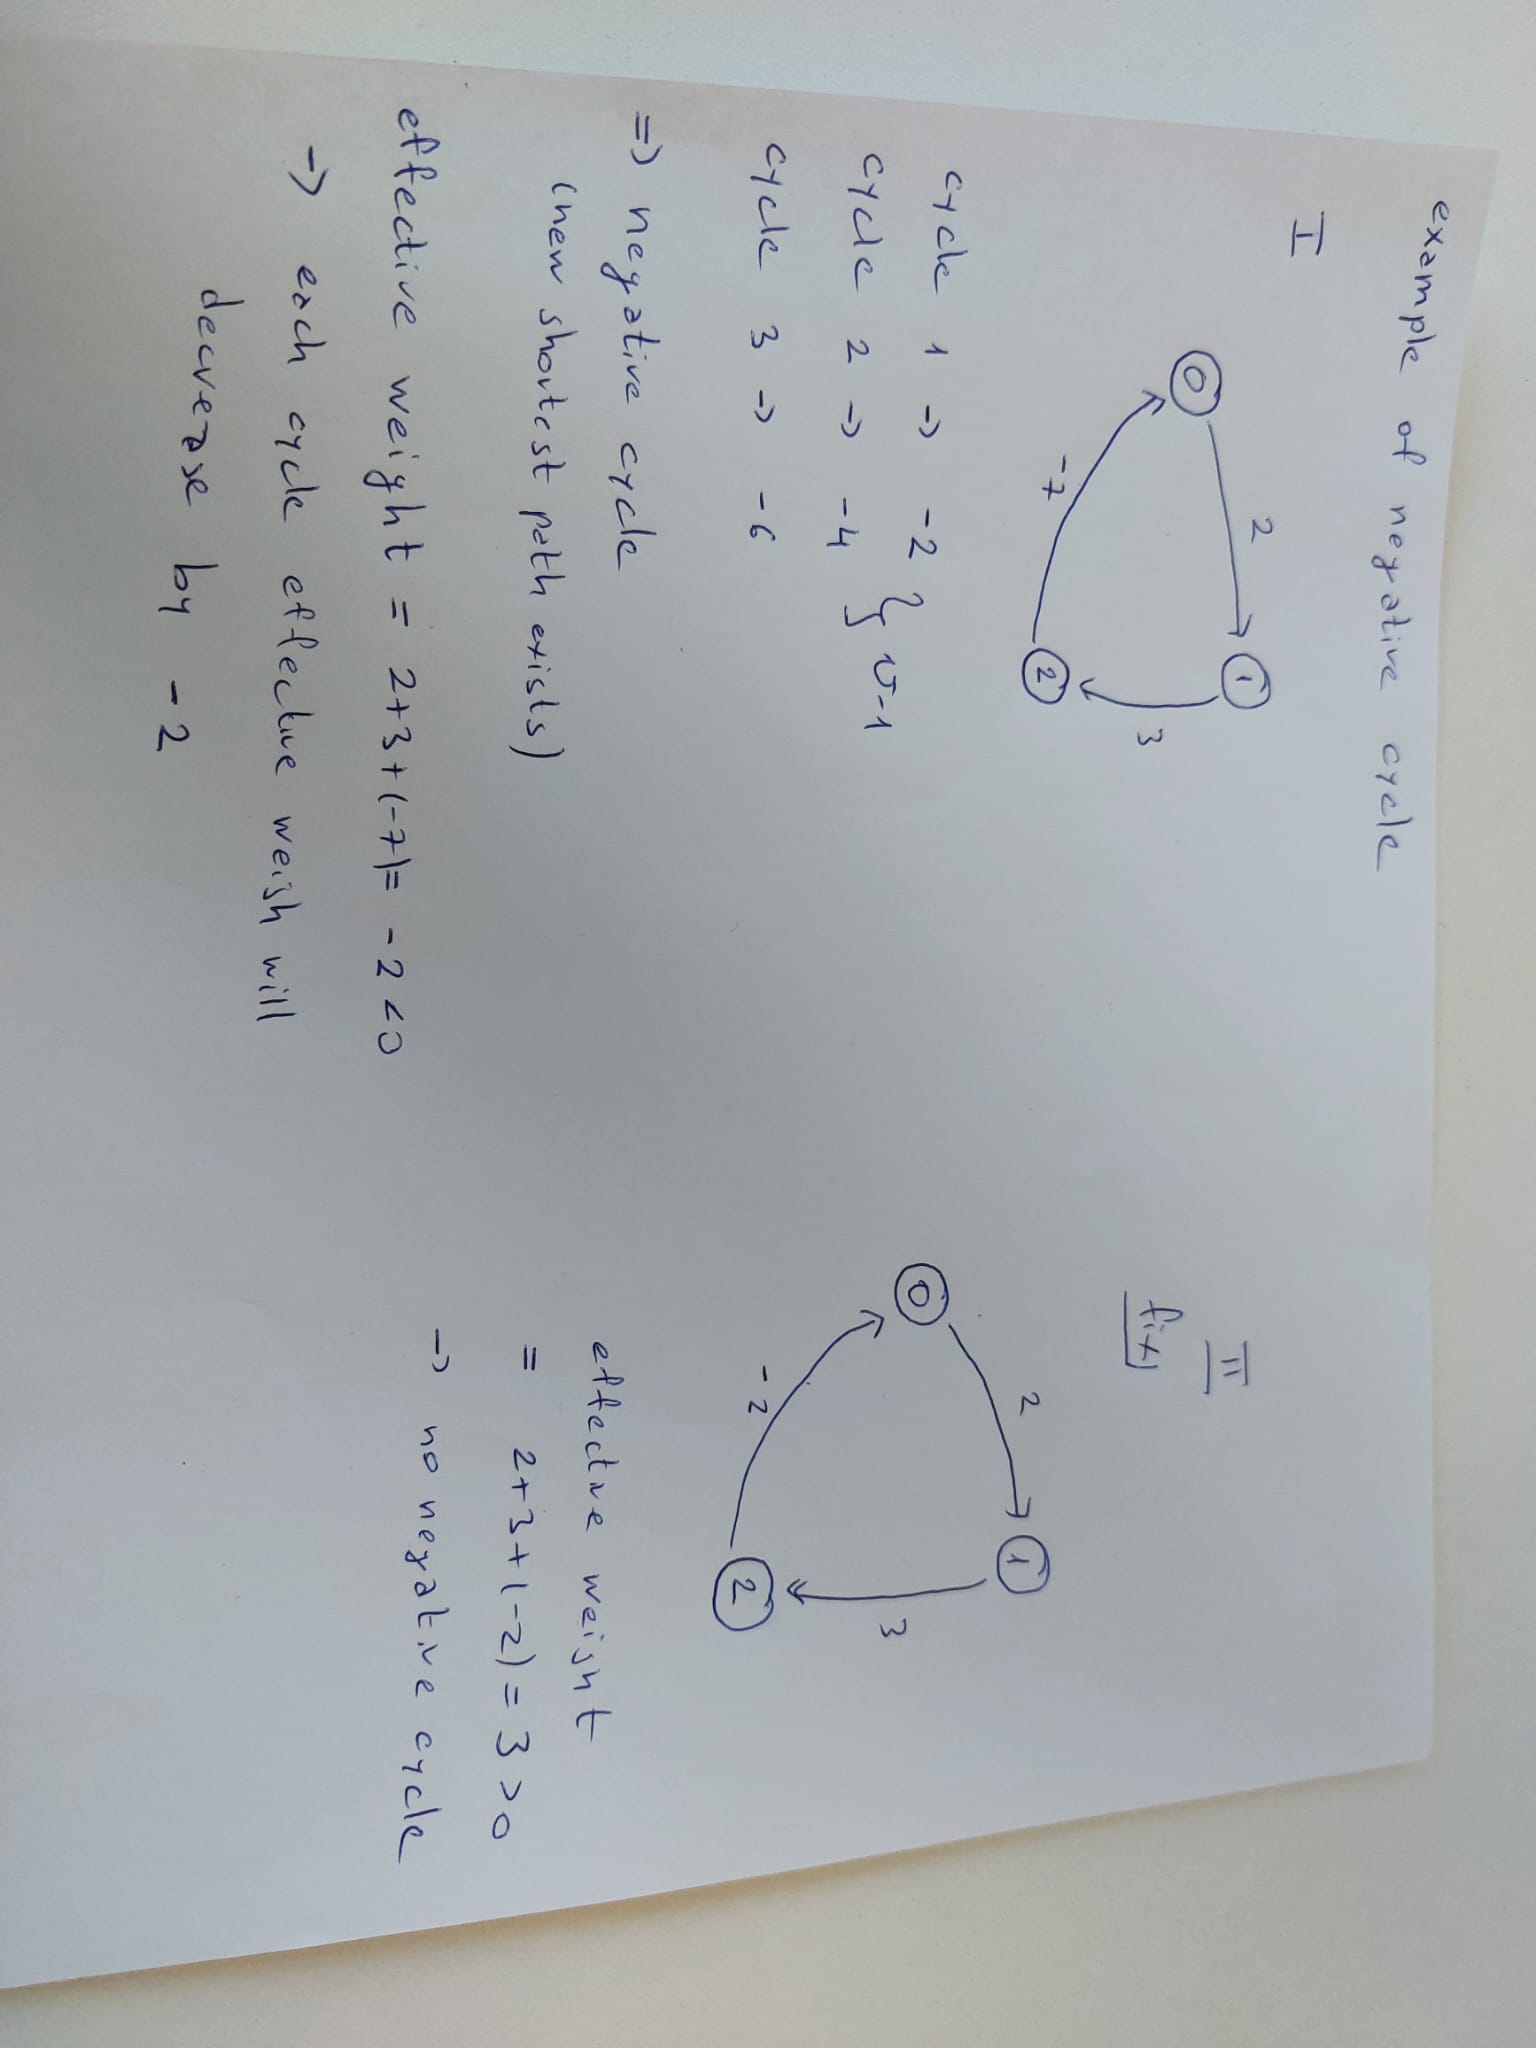 example of negative cycle
I
0
2
1
3
2
-7
cycle 1 -> -2
cycle 2 -> -4 } v-1
cycle 3 -> -6
=> negative cycle
(new shortest path exists)
effective weight = 2+3+(-7)= -2 <0
-> each cycle effective weigh will
decrease by -2
II
fix
0
2
1
3
2
-2
effective weight
= 2+3+(-2) = 3 >0
-> no negative cycle